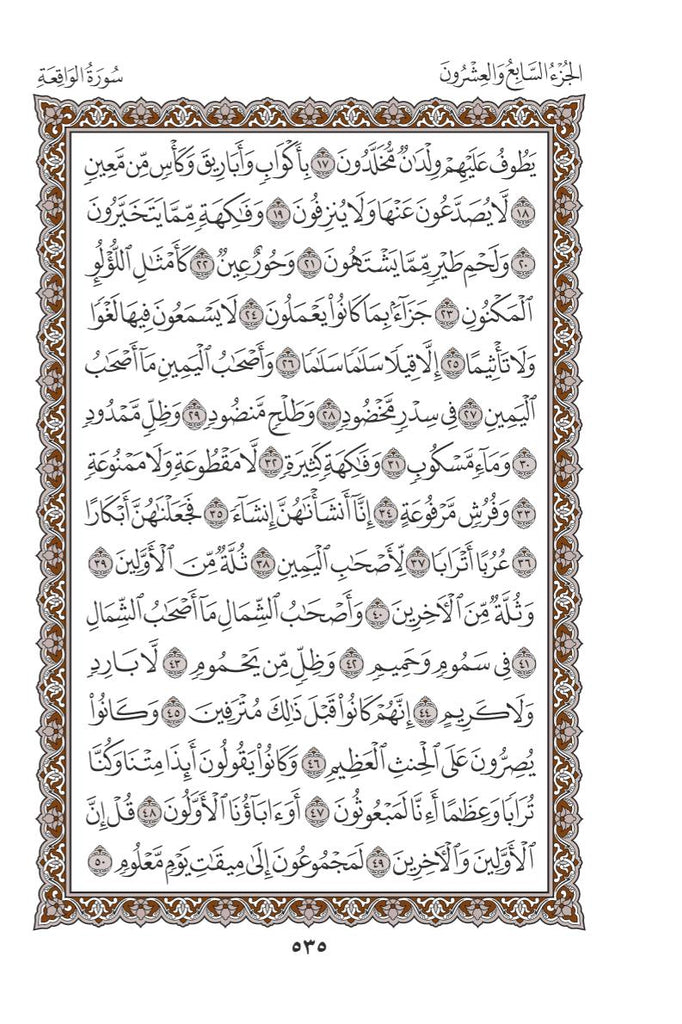 الجُزْءُ السَّابِعُ وَالعِشْرُونَ
سُورَةُ الوَاقِعَةِ
يَطُوفُ عَلَيْهِمْ وِلْدَٰنٌ مُّخَلَّدُونَ ١٧ بِأَكْوَابٍ وَأَبَارِيقَ وَكَأْسٍ مِّن مَّعِينٍ
١٨ لَّا يُصَدَّعُونَ عَنْهَا وَلَا يُنزِفُونَ ١٩ وَفَٰكِهَةٍ مِّمَّا يَتَخَيَّرُونَ
٢٠ وَلَحْمِ طَيْرٍ مِّمَّا يَشْتَهُونَ ٢١ وَحُورٌ عِينٌ ٢٢ كَأَمْثَٰلِ اللُّؤْلُؤِ
الْمَكْنُونِ ٢٣ جَزَآءًۢ بِمَا كَانُوا۟ يَعْمَلُونَ ٢٤ لَا يَسْمَعُونَ فِيهَا لَغْوًا
وَلَا تَأْثِيمًا ٢٥ إِلَّا قِيلًا سَلَٰمًا سَلَٰمًا ٢٦ وَأَصْحَٰبُ الْيَمِينِ مَآ أَصْحَٰبُ
الْيَمِينِ ٢٧ فِى سِدْرٍ مَّخْضُودٍ ٢٨ وَطَلْحٍ مَّنضُودٍ ٢٩ وَظِلٍّ مَّمْدُودٍ
٣٠ وَمَآءٍ مَّسْكُوبٍ ٣١ وَفَٰكِهَةٍ كَثِيرَةٍ ٣٢ لَّا مَقْطُوعَةٍ وَلَا مَمْنُوعَةٍ
٣٣ وَفُرُشٍ مَّرْفُوعَةٍ ٣٤ إِنَّآ أَنشَأْنَٰهُنَّ إِنشَآءً ٣٥ فَجَعَلْنَٰهُنَّ أَبْكَارًا
٣٦ عُرُبًا أَتْرَابًا ٣٧ لِّأَصْحَٰبِ الْيَمِينِ ٣٨ ثُلَّةٌ مِّنَ الْأَوَّلِينَ ٣٩
وَثُلَّةٌ مِّنَ الْءَاخِرِينَ ٤٠ وَأَصْحَٰبُ الشِّمَالِ مَآ أَصْحَٰبُ الشِّمَالِ
٤١ فِى سَمُومٍ وَحَمِيمٍ ٤٢ وَظِلٍّ مِّن يَحْمُومٍ ٤٣ لَّا بَارِدٍ
وَلَا كَرِيمٍ ٤٤ إِنَّهُمْ كَانُوا۟ قَبْلَ ذَٰلِكَ مُتْرَفِينَ ٤٥ وَكَانُوا۟
يُصِرُّونَ عَلَى الْحِنثِ الْعَظِيمِ ٤٦ وَكَانُوا۟ يَقُولُونَ أَئِذَا مِتْنَا وَكُنَّا
تُرَابًا وَعِظَٰمًا أَءِنَّا لَمَبْعُوثُونَ ٤٧ أَوَءَابَآؤُنَا الْأَوَّلُونَ ٤٨ قُلْ إِنَّ
الْأَوَّلِينَ وَالْءَاخِرِينَ ٤٩ لَمَجْمُوعُونَ إِلَىٰ مِيقَٰتِ يَوْمٍ مَّعْلُومٍ ٥٠
٥٣٥